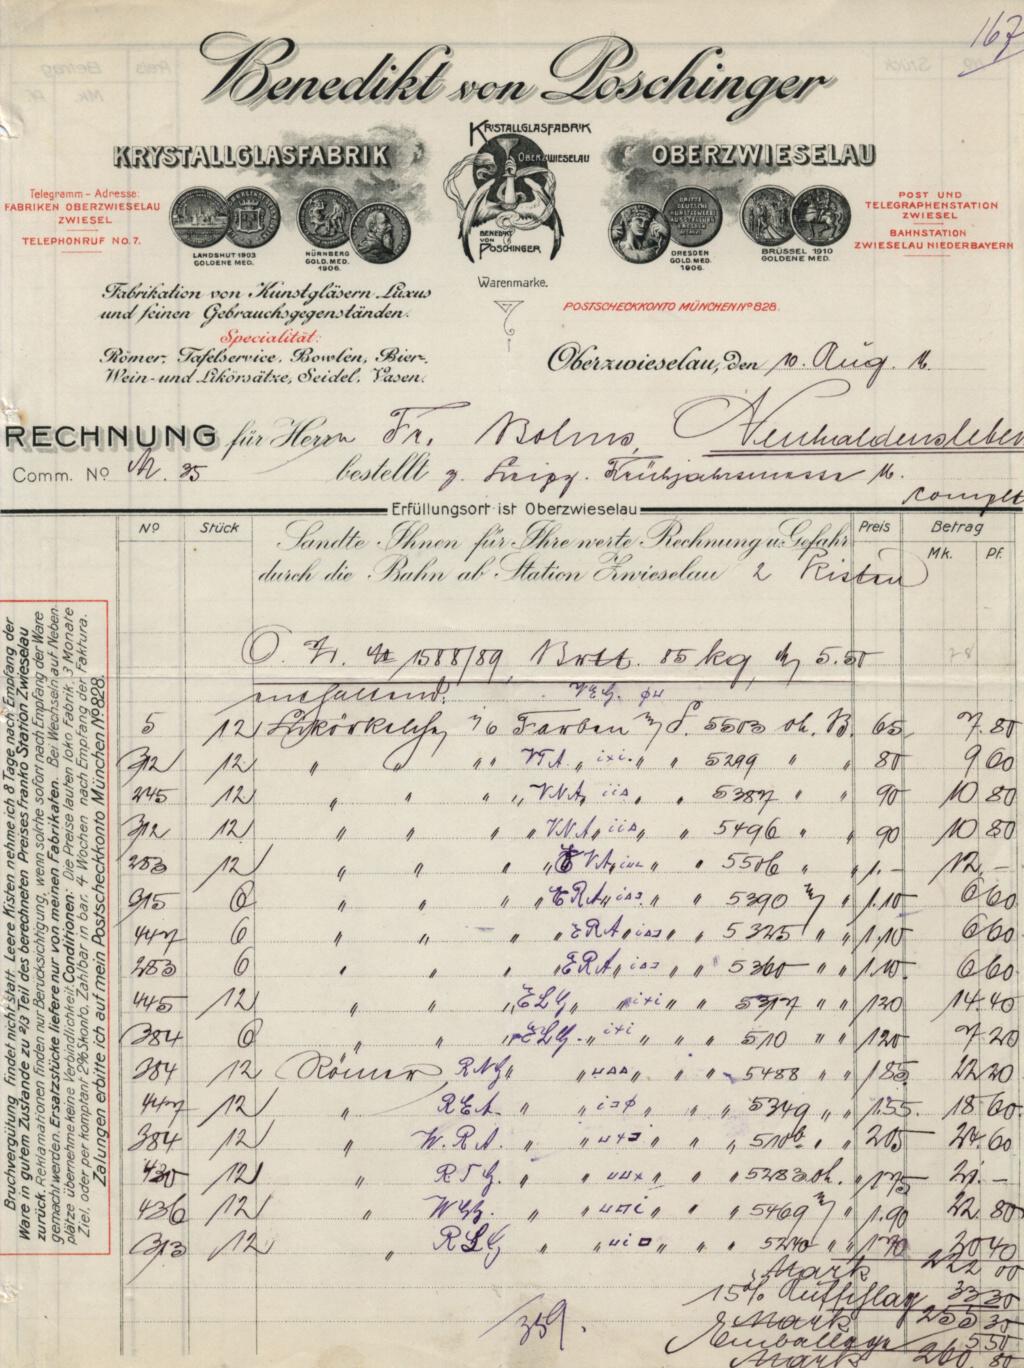 167
Benedikt von Poschinger
KRYSTALLGLASFABRIK
KRISTALLGLASFABRIK
OBERZWIESELAU
BENEDIKT
VON
POSCHINGER
OBERZWIESELAU
Telegramm-Adresse:
FABRIKEN OBERZWIESELAU
ZWIESEL
TELEPHONRUF No. 7.
LANDSHUT 1903
GOLDENE MED.
NÜRNBERG
GOLD. MED.
1906.
DRITTE
DEUTSCHE
KUNSTGEWERBE
AUSSTELLUNG
DRESDEN
DRESDEN
GOLD. MED.
1906.
BRÜSSEL 1910
GOLDENE MED.
POST UND
TELEGRAPHENSTATION
ZWIESEL
BAHNSTATION
ZWIESELAU NIEDERBAYERN
Warenmarke.
Fabrikation von Kunstgläsern Luxus
und feinen Gebrauchsgegenständen.
Specialität:
Römer, Tafelservice, Bowlen, Bier-,
Wein- und Likörsätze, Seidel, Vasen.
POSTSCHECKKONTO MÜNCHEN No 828.
Oberzwieselau, den 10. Aug. 16.
RECHNUNG für Herrn Fr. Bolms, Neuhaldensleben
Comm. No 35 bestellt z. Leipz. Frühjahrsmesse 16.
complt
Erfüllungsort ist Oberzwieselau
No Stück Preis Betrag
Mk. Pf.
Sandte Ihnen für Ihre werte Rechnung u. Gefahr
durch die Bahn ab Station Zwieselau 2 Kisten
O. Z. 1588/89 Brtt. 85 kg 5.50
enthaltend:
5 12 Likörkelche 6 Farben 5503 oh. B. 65 7 80
312 12 " " " " V.T.A. " " 5299 " " 80 9 60
245 12 " " " " V.N.A. " " 5387 " " 90 10 80
312 12 " " " " V.N.A. " " 5496 " " 90 10 80
283 12 " " " " V.A. " " 5506 " " 1.- 12.-
315 6 " " " " E.R.A. " " 5390 " 1.10 6 60
447 6 " " " " E.R.A. " " 5325 " " 1.10 6 60
283 6 " " " " E.R.A. " " 5360 " " 1.10 6 60
445 12 " " " " E.L.G. " " 5397 " " 1 20 14.40
384 6 " " " " E.L.G. " " 510 " " 1 20 7.20
384 12 Römer R.N.G. " " 5488 " " 1 85 22 20
447 12 " R.E.A. " " 5349 " " 1.55 18 60
384 12 " W.R.A. " " 510b " " 2 05 24.60
430 12 " R.T.G. " " 5283 oh. " 1 75 21.-
436 12 " W.G.G. " " 5469 " 1.90 22 80
313 12 " R.L.G. " " 5240 " " 1 70 20 40
Mark 222 00
15% Aufschlag 33 30
Mark 255 30
Emballage 5 50
Mark 260 80
359.
Bruchvergütung findet nicht statt. Leere Kisten nehme ich 8 Tage nach Empfang der
Ware in gutem Zustande zu 2/3 Teil des berechneten Preises franko Station Zwieselau
zurück. Reklamationen finden nur Berücksichtigung, wenn solche sofort nach Empfang der Ware
gemacht werden. Ersatzstücke liefere nur von meinen Fabrikaten. Bei Wechseln auf Neben-
plätze übernehme keine Verbindlichkeit. Conditionen: Die Preise lauten loko Fabrik, 3 Monate
Ziel, oder per komptant 2% Skonto. Zahlbar in bar, 4 Wochen nach Empfang der Faktura.
Zalungen erbitte ich auf mein Postscheckkonto München No 828.